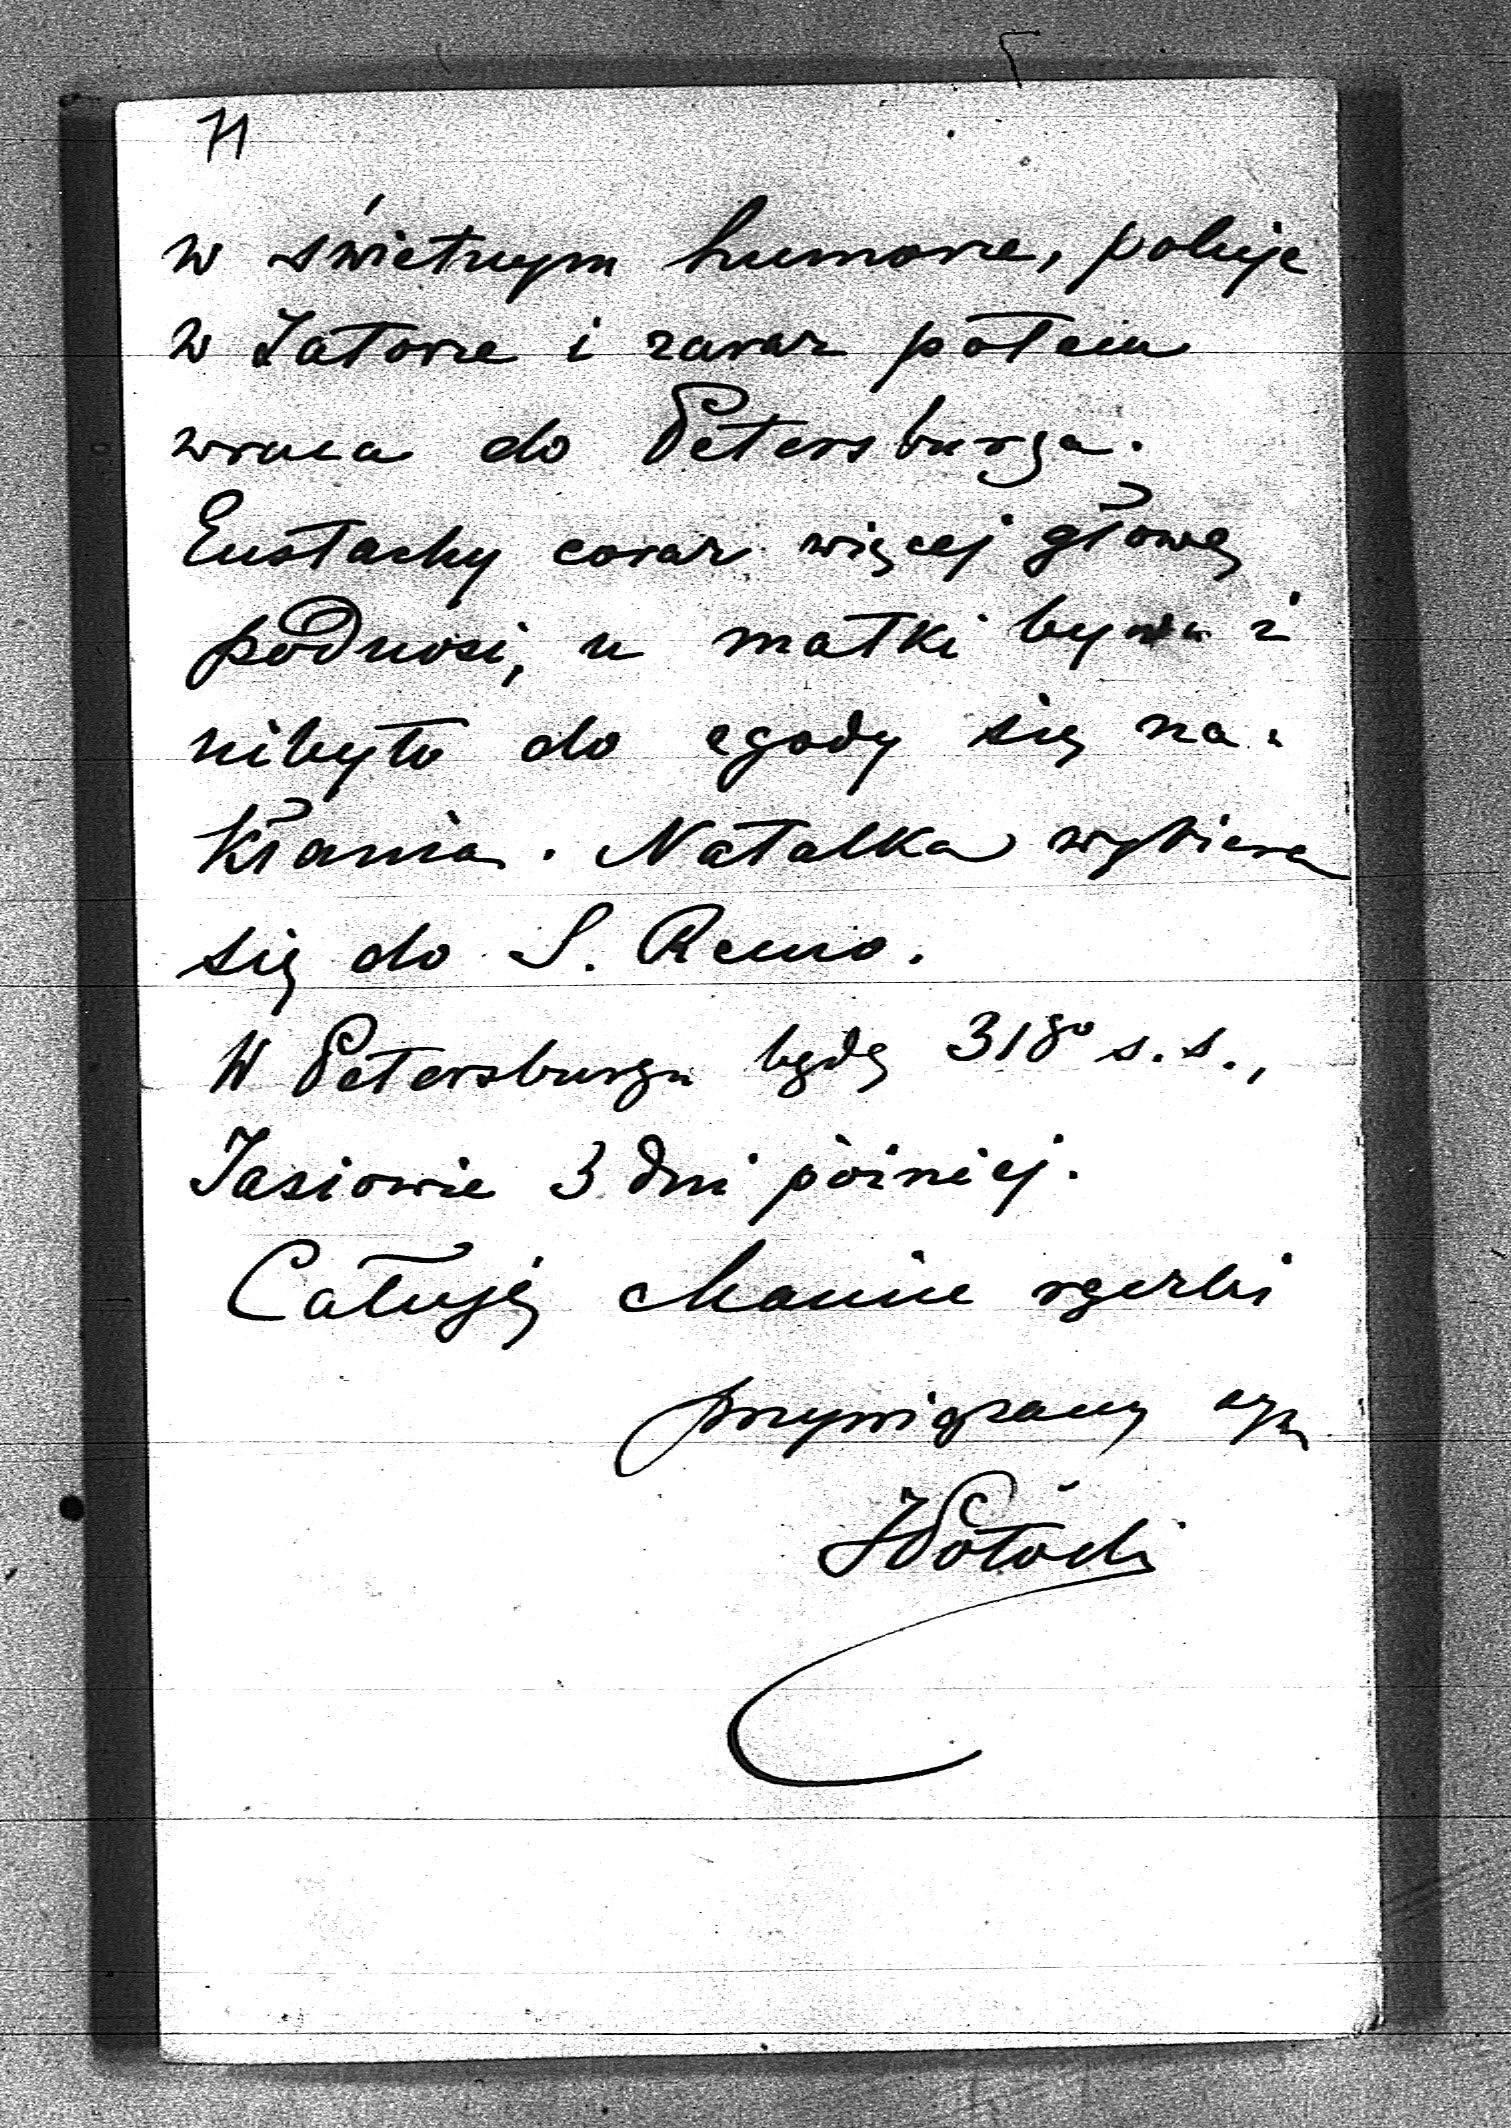 71
w świetnym humorze, poluje
w Zatorze i zaraz potem
wraca do Petersburga.
Eustachy coraz więcej głowę
podnosi, u matki bywa i
nibyto do zgody się na-
kłania. Natalka wybiera
się do S. Remo.
W Petersburgu będę 31go s. s.,
Jasiowie 3 dni później.
Całuję Mamie rączki
przywiązany syn
JPotocki